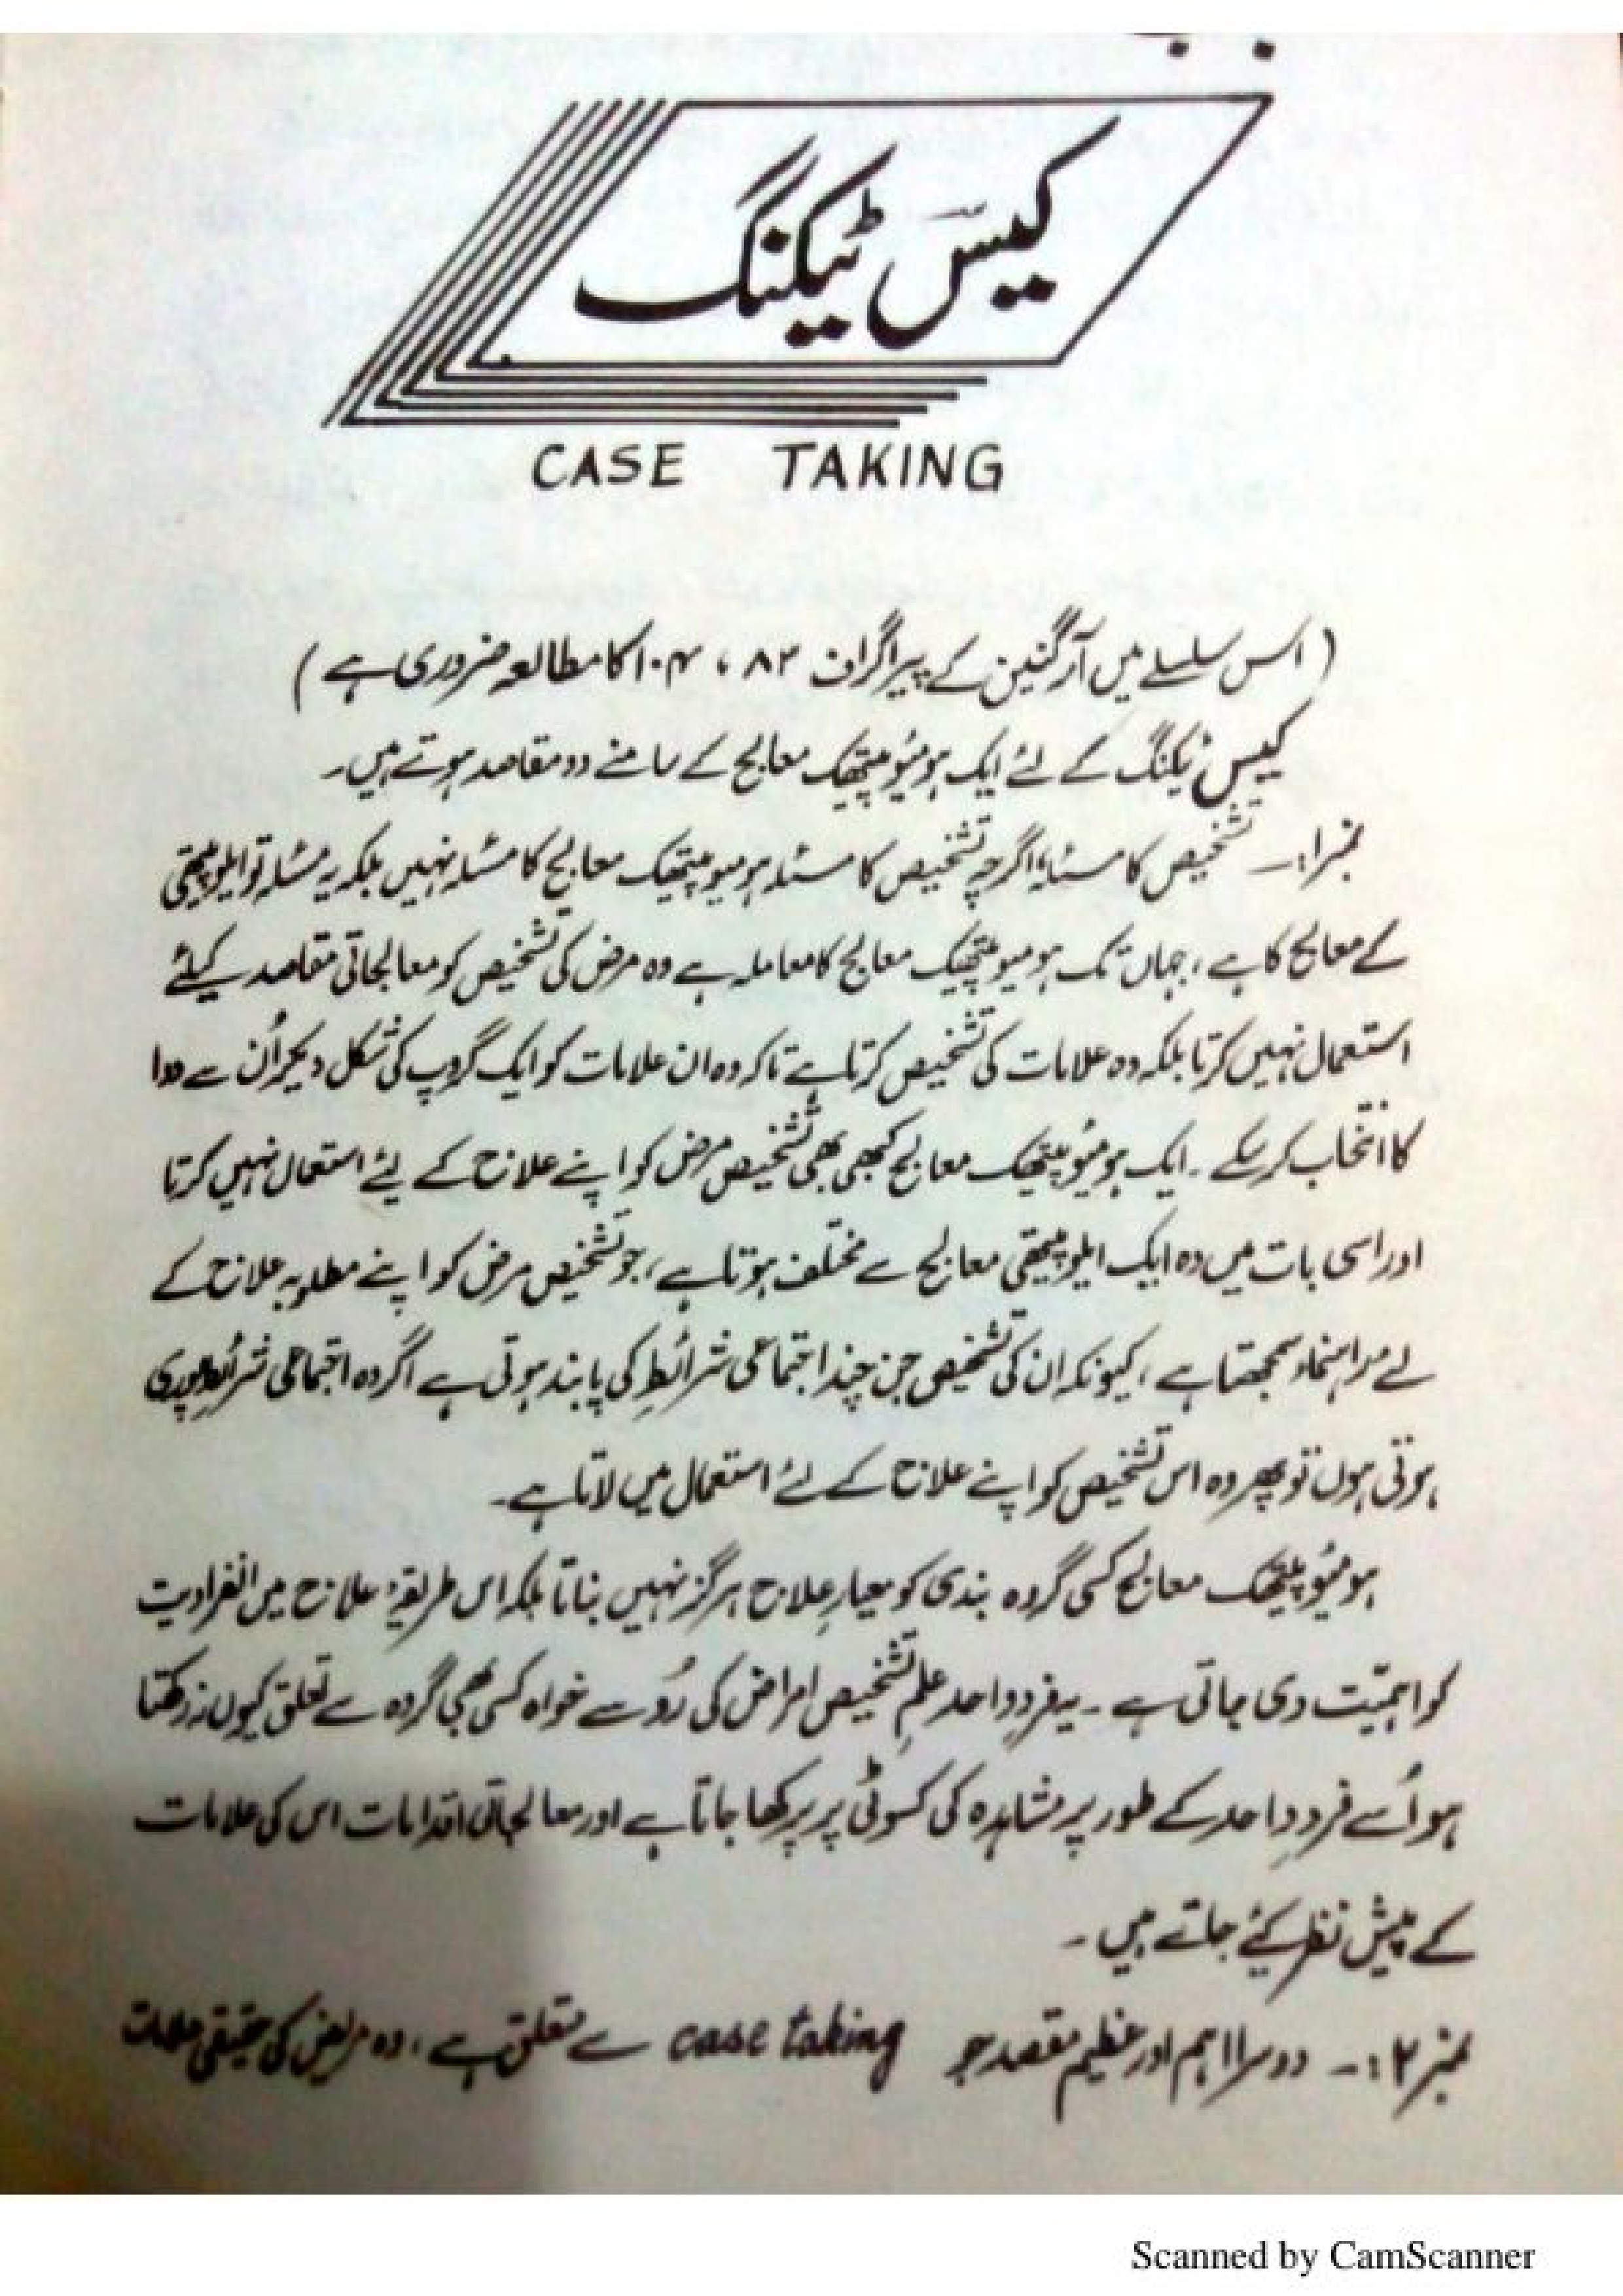 کیس ٹیکنگ
CASE TAKING
( اس سلسلے میں آرگنین کے پیراگراف ۸۲ ، ۱۰۴ کا مطالعہ ضروری ہے )
کیس ٹیکنگ کے لئے ایک ہومیوپیتھک معالج کے سامنے دو مقاصد ہوتے ہیں۔
نمبر۱:۔ تشخیص کا مسئلہ؛ اگرچہ تشخیص کا مسئلہ ہومیوپیتھیک معالج کا مسئلہ نہیں بلکہ یہ مسئلہ تو ایلوپیتھی
کے معالج کا ہے ، جہاں تک ہومیوپیتھیک معالج کا معاملہ ہے وہ مرض کی تشخیص کو معالجاتی مقاصد کیلئے
استعمال نہیں کرتا بلکہ وہ علامات کی تشخیص کرتا ہے تاکہ وہ ان علامات کو ایک گروپ کی شکل دیکر اُن سے دوا
کا انتخاب کر سکے ۔ ایک ہومیوپیتھیک معالج کبھی بھی تشخیص مرض کو اپنے علاج کے لیئے استعمال نہیں کرتا
اور اسی بات میں وہ ایک ایلوپیتھی معالج سے مختلف ہوتا ہے ، جو تشخیص مرض کو اپنے مطلوبہ علاج کے
لے مد راہنماء سمجھتا ہے ، کیونکہ ان کی تشخیص جن چند اجتماعی شرائط کی پابند ہوتی ہے اگر وہ اجتماعی شرائط پوری
ہوتی ہوں تو پھر وہ اس تشخیص کو اپنے علاج کے لئے استعمال میں لاتا ہے۔
ہومیوپیتھک معالج کسی گروہ بندی کو معیارِ علاج ہرگز نہیں بناتا بلکہ اس طریقۂ علاج میں انفرادیت
کو اہمیّت دی جاتی ہے ۔ یہ فردِ واحد علمِ تشخیص امراض کی رُو سے خواہ کسی بھی گروہ سے تعلق کیوں نہ رکھتا
ہو اُسے فردِ واحد کے طور پر مشاہدہ کی کسوٹی پر پرکھا جاتا ہے اور معالجاتی اقدامات اس کی علامات
کے پیش نظر کیئے جاتے ہیں ۔
نمبر ۲:۔ دوسرا اہم اور عظیم مقصد جو case taking سے متعلق ہے ، وہ مریض کی حقیقی علامات
Scanned by CamScanner